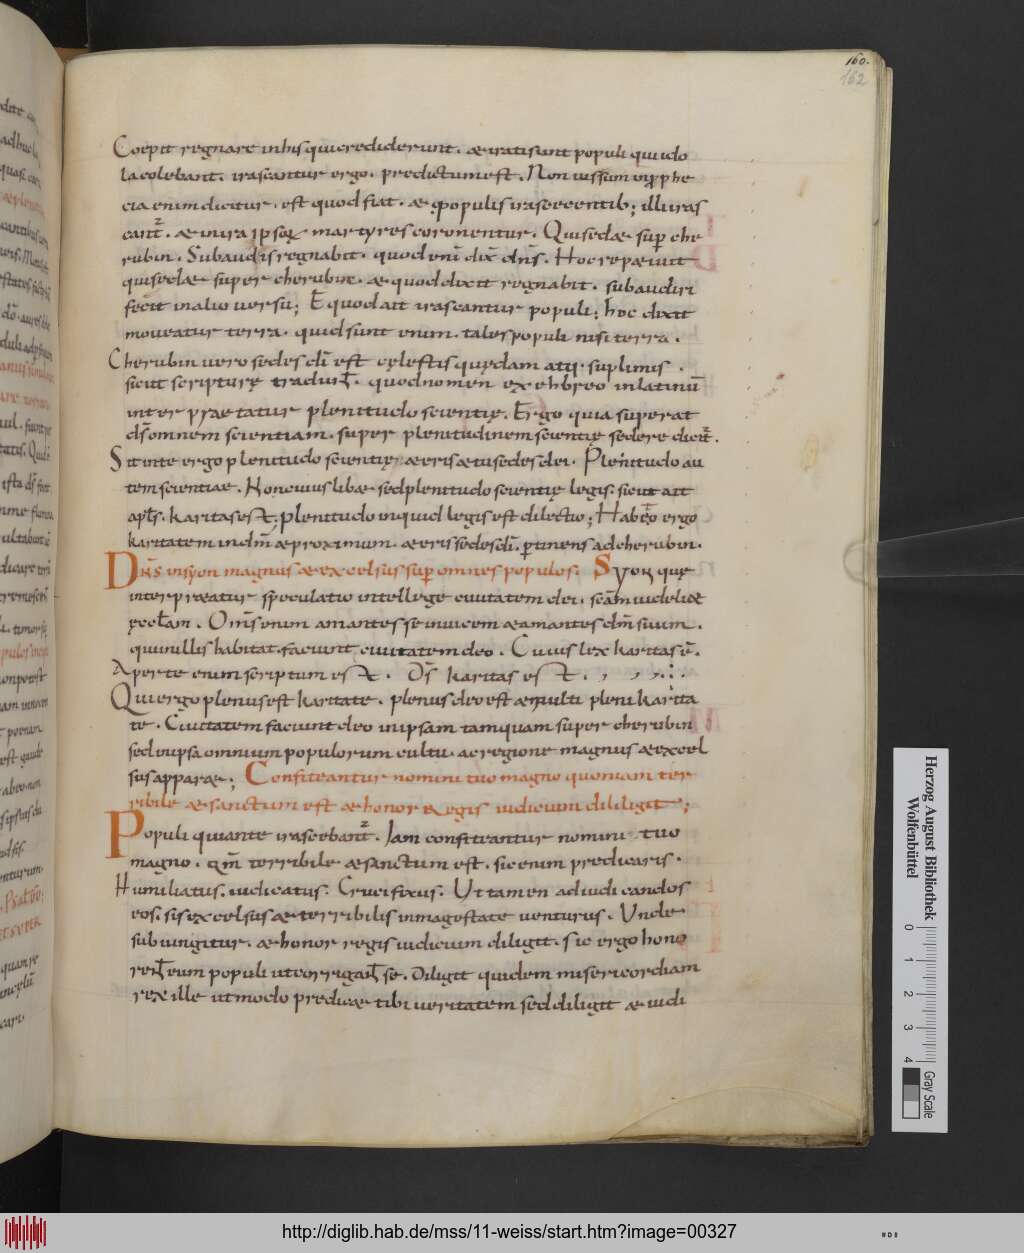 160.
162
Coepit regnare inhis qui crediderunt. & irati sunt populi qui ido
la colebant. irascantur ergo. predictum est. Non uis sim in p̱phe
cia enim dicitur. est quod fiat. & populis irascentib; illi iras
cant᷑. & in ira ipsoꝝ martyres coronentur. Qui sed& sup̱ che
rubin. Subaudis regnabit. quod eni̅ dix̅ dn̅s. Hoc rep&iuit
qui sed& super cherubin. & quod dixit regnabit. subaudiri
fecit in alio uersu; Et quod ait irascantur populi; hoc dixit
moueatur terra. quid sunt enim. tales populi nisi terra.
Cherubin uero sedes di̅ est cęlestis quędam atq; suplimis.
sicut scripturę tradunt̅. quod nomen ex ehbreo in latinu̅
interpraetatur plenitudo scientię. Ergo quia superat
ds̅ omnem scientiam. super plenitudinem scientię sedere dicit᷑.
Sit in te ergo plenitudo scientię & eris & tu sedes dei. Plenitudo au
tem scientiae. Non cuiuslib& sed plenitudo scientię legis. sicut ait
apls̅. karitas est; plenitudo inquid legis est dilectio; Habeto ergo
karitatem in dm̅ & proximum. & eris sedes di̅. p̱tinens ad cherubin.
DNS in syon magnus & excelsus sup̱ omnes populos. Syon quę
interpr&atur speculatio intellege ciuitatem dei. scam̅ uidelic&
ęcclam̅. Om̅s enim amantes se inuicem & amantes dm̅ suum.
qui in illis habitat. faciunt ciuitatem deo. Cuius lex karitas e̅.
Aperte enim scriptum est. Ds̅ karitas est.
Qui ergo plenus est karitate. plenus deo est & multi pleni karita
te. Ciuitatem faciunt deo in ipsam tamquam super cherubin
sed in ipsa omnium populorum cultu. ac regione magnus & excel
sus appar&; Confiteantur nomini tuo magno quoniam ter
ribile & sanctum est & honor regis iudicium dililigit;
Populi qui ante irascebant᷑. Iam confiteantur nomini tuo
magno. qm̅ terribile & sanctum est. sic enim predicaris.
Humiliatus. iudicatus. Crucifixus. Ut tamen ad iudicandos
eos. sis excelsus & terribilis in magestate uenturus. Unde
subiungitur. & honor regis iudicium diligit. sic ergo hono
rent̅ eum populi ut corrigant̅ se. Diligit quidem misericordiam
rex ille ut modo predic& tibi ueritatem sed diligit & iudi
Herzog August Bibliothek
Wolfenbüttel
0 1 2 3 4
Gray Scale
http://diglib.hab.de/mss/11-weiss/start.htm?image=00327